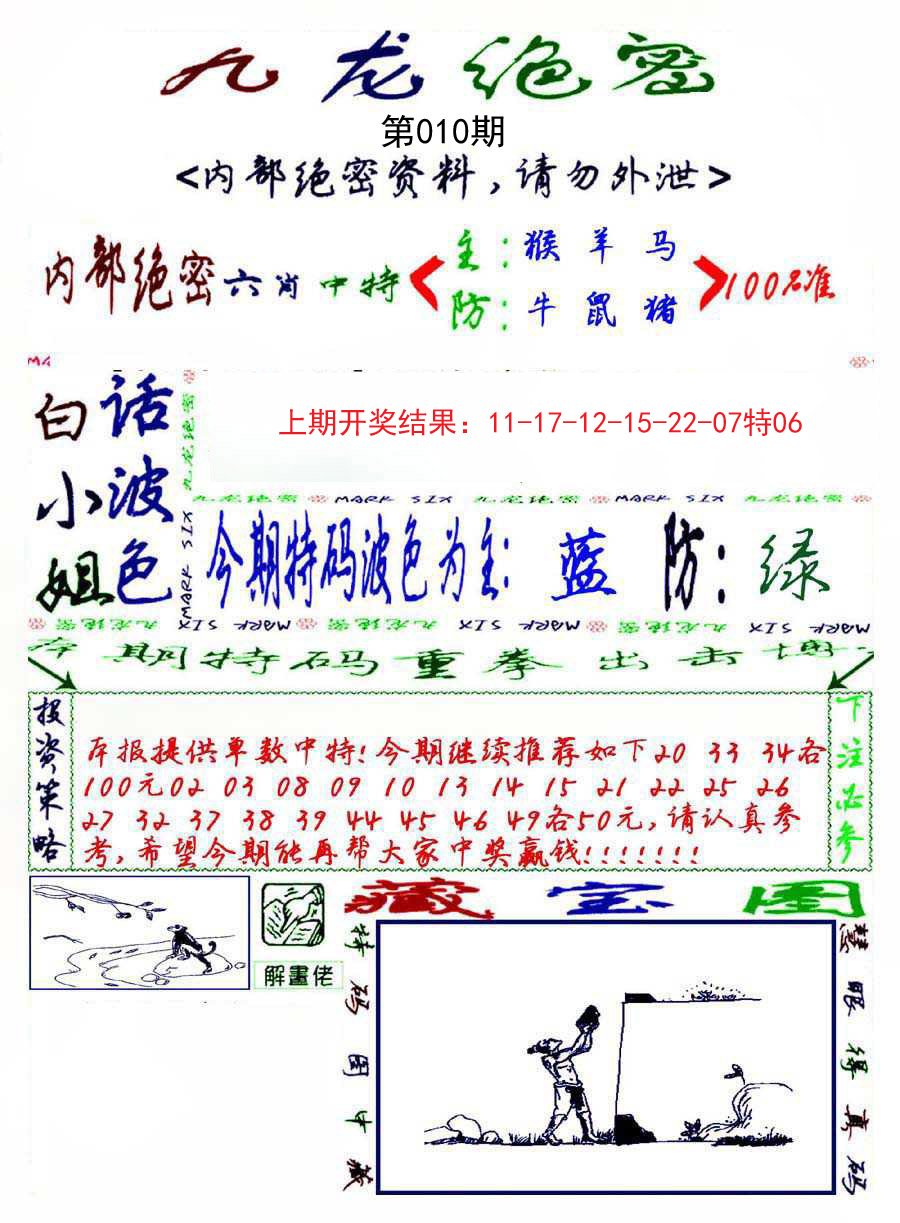 九龙绝密
第010期
<内部绝密资料,请勿外泄>
内部绝密六肖中特
主:猴羊马
防:牛鼠猪
100%准
白小姐
话波色
上期开奖结果：11-17-12-15-22-07特06
九龙绝密 MARK SIX
九龙绝密 MARK SIX 九龙绝密 MARK SIX 九龙绝密
今期特码波色为主:蓝 防:绿
九龙绝密 MARK SIX MARK SIX 九龙绝密 九龙绝密 MARK SIX MARK SIX 九龙绝密 MARK SIX
本期特码重拳出击博
投资策略
本报提供单数中特!今期继续推荐如下20 33 34各
100元02 03 08 09 10 13 14 15 21 22 25 26
27 32 37 38 39 44 45 46 49各50元,请认真参
考,希望今期能再帮大家中奖赢钱!!!!!!!
下注必参
解畫佬
藏宝图
特码图中藏
慧眼得真码